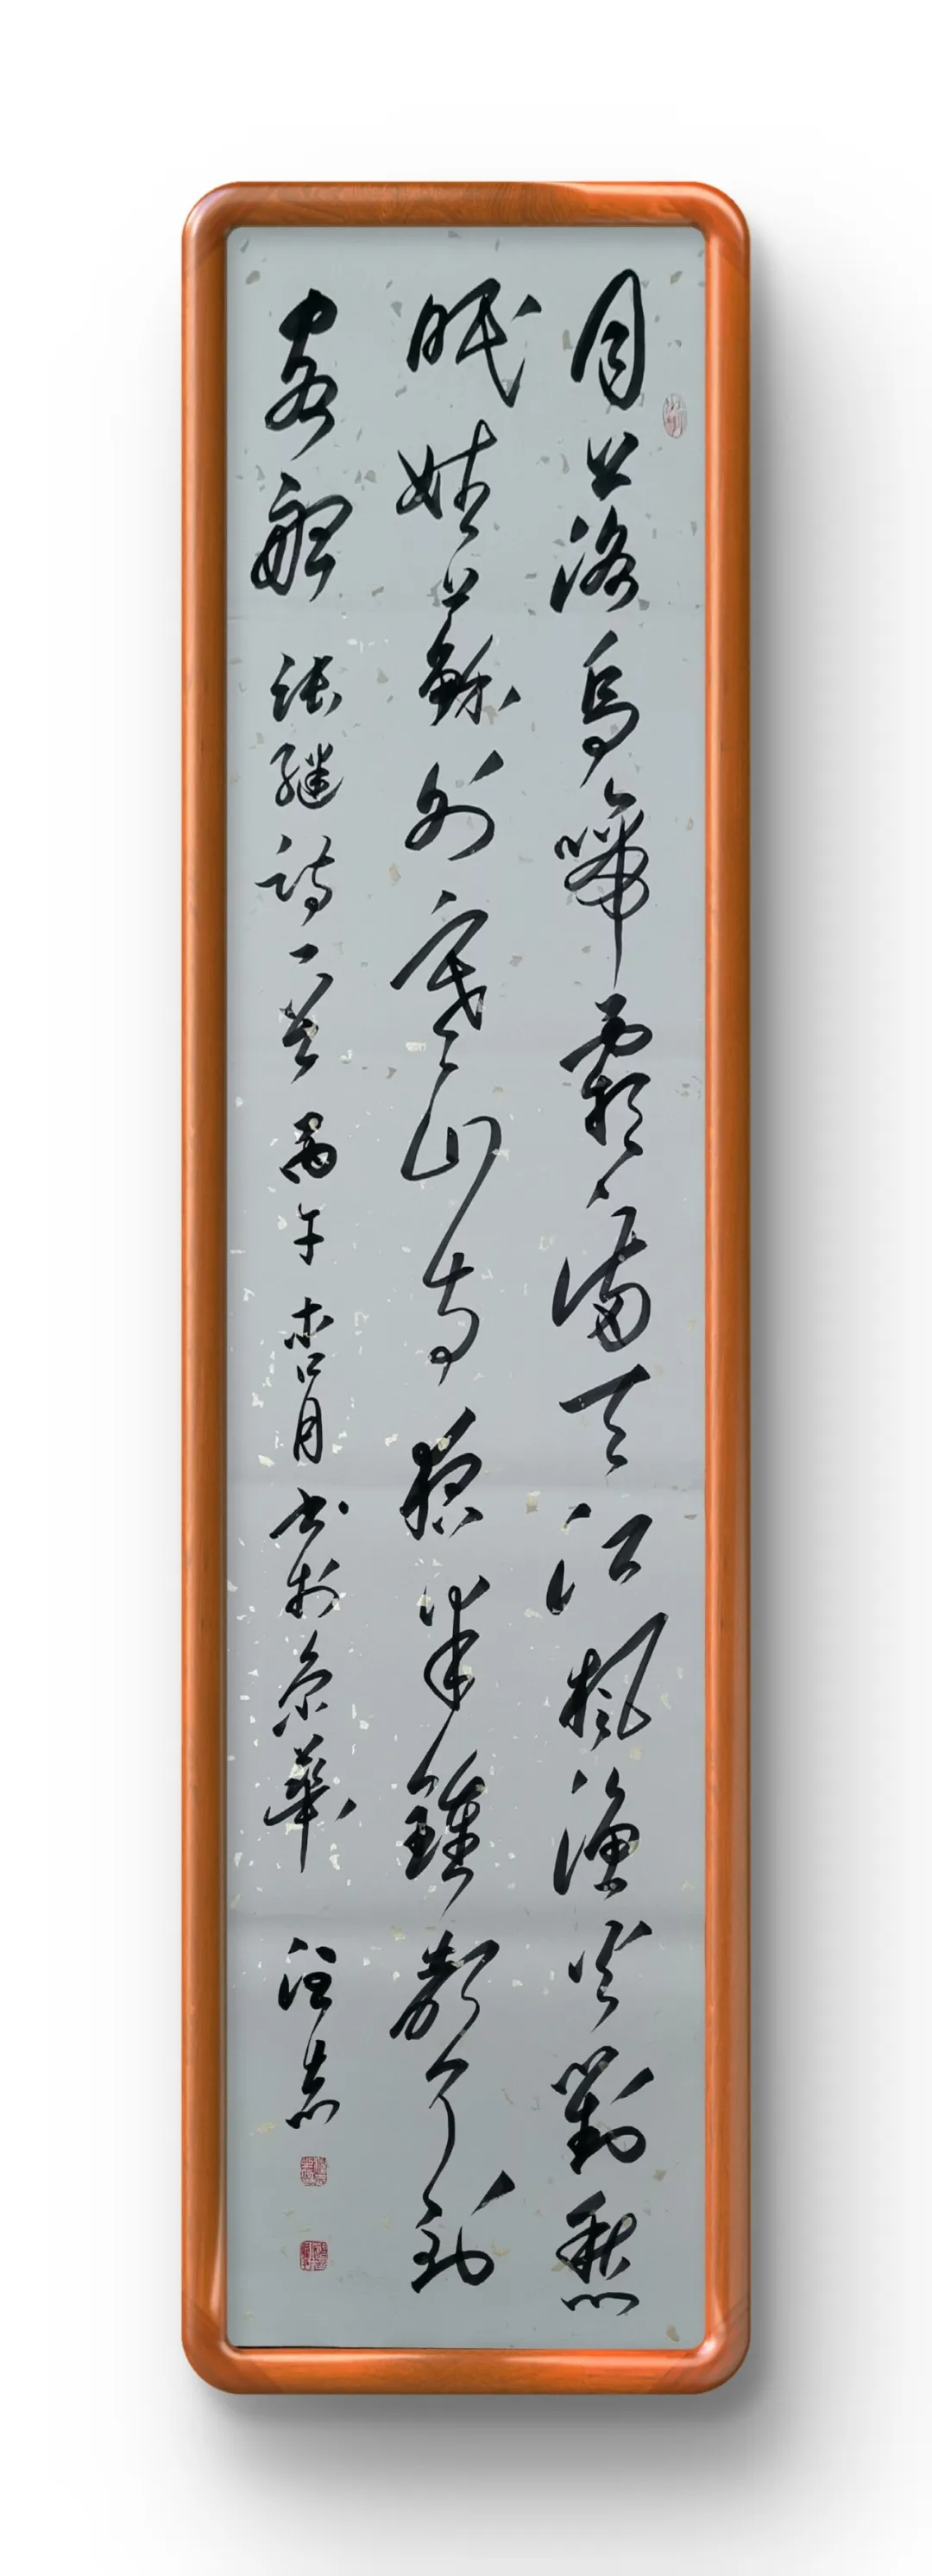 月落烏啼霜满天江楓漁火對愁
眠姑蘇外寒山寺夜半鐘聲到
客船 張繼詩一首 丙午杏月书於京華 汪志